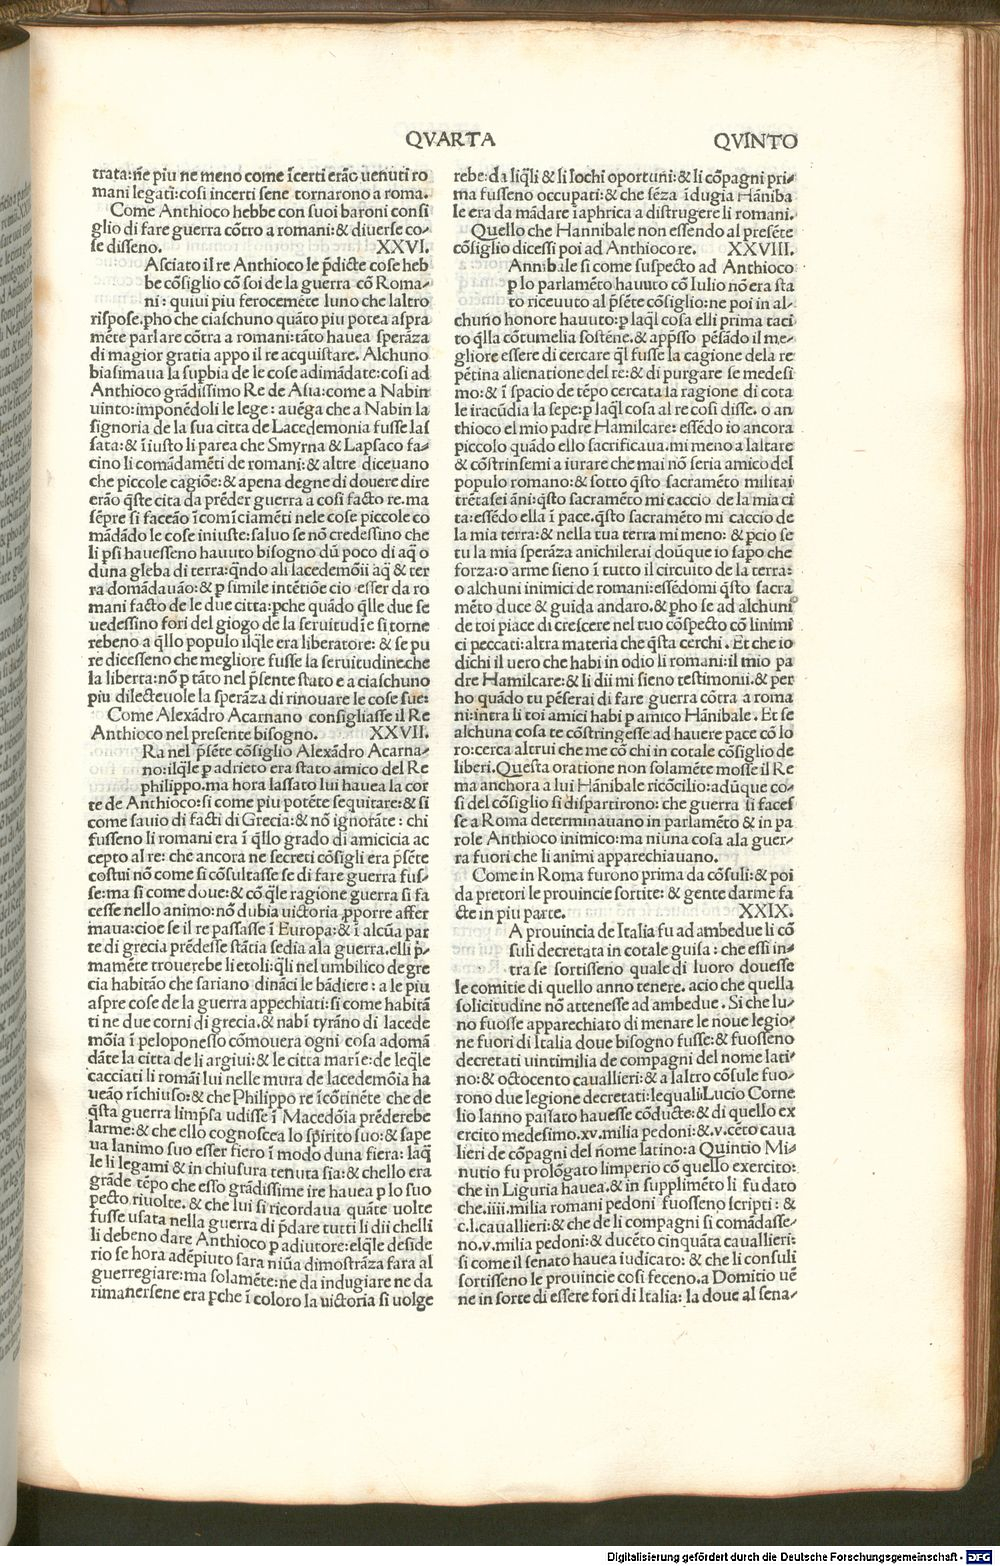 QVARTA QVINTO
trata:ñe piu ne meno come īcerti erão uenuti ro
mani legati:cosi incerti sene tornarono a roma.
Come Anthioco hebbe con suoi baroni consi
glio di fare guerra cõtro a romani:& diuerse co-
se disseno. XXVI.
Asciato il re Anthioco le p̃dicte cose heb
be cõsiglio cõ soi de la guerra cõ Roma-
ni: quiui piu ferocemẽte luno che laltro
rispose.pho che ciaschuno quãto piu potea aspra
mẽte parlare cõtra a romani:tãto hauea sperãza
di magior gratia appo il re acquistare. Alchuno
biasimaua la supbia de le cose adimãdate:cosi ad
Anthioco grãdissimo Re de Asia:come a Nabin
uinto:imponẽdoli le lege: auẽga che a Nabin la
signoria de la sua citta de Lacedemonia fusse las
sata:& īiusto li parea che Smyrna & Lapsaco fa-
cino li comãdamẽti de romani:& altre diceuano
che piccole cagiõe:& apena degne di douere dire
erão q̃ste cita da prẽder guerra a cosi facto re.ma
sẽpre si faceão īcomīciamẽti nele cose piccole co
mãdãdo le cose iniuste:saluo se nõ credessino che
li psi hauesseno hauuto bisogno dũ poco di aq̃ o
duna gleba di terra:q̃ndo ali lacedemõii aq̃ & ter
ra domãdauão:& p simile intẽtiõe cio esser da ro
mani facto de le due citta:pche quãdo q̃lle due se
uedessino fori del giogo de la seruitudīe si torne
rebeno a q̃llo populo ilq̃le era liberatore: & se pu
re dicesseno che megliore fusse la seruitudineche
la liberta:nõ p tãto nel p̃sente stato e a ciaschuno
piu dilecteuole la sperãza di rinouare le cose sue:
Come Alexãdro Acarnano consigliasse il Re
Anthioco nel presente bisogno. XXVII.
Ra nel p̃sẽte cõsiglio Alexãdro Acarna-
no:ilq̃le p adrieto era stato amico del Re
philippo.ma hora lassato lui hauea la cor
te de Anthioco:si come piu potẽte sequitare:& si
come sauio di facti di Grecia:& nõ ignorãte: chi
fusseno li romani era ī q̃llo grado di amicicia ac
cepto al re: che ancora ne secreti cõsigli era p̃sẽte
costui nõ come si cõsultasse se di fare guerra fus-
se:ma si come doue:& cõ q̃le ragione guerra si fa
cesse nello animo:nõ dubia uictoria pporre affer
maua:cioe se il re passasse ī Europa:& ī alcũa par
te di grecia prẽdesse stãtia sedia ala guerra.elli p̃-
mamẽte trouerebe li etoli:q̃li nel umbilico de gre
cia habitão che sariano dinãci le bãdiere: a le piu
aspre cose de la guerra appechiati:si come habitã
ti ne due corni di grecia.& nabī tyrãno di lacede
mõia ī peloponesso cõmouera ogni cosa adomã
dãte la citta de li argiui:& le citta marīe:de leq̃le
cacciati li romãi lui nelle mura de lacedemõia ha
ueão rīchiuso:& che Philippo re īcõtinẽte che de
q̃sta guerra limp̃sa udisse ī Macedõia prẽderebe
larme:& che ello cognoscea lo spirito suo:& sape
ua lanimo suo esser fiero ī modo duna fiera: laq̃
le li legami & in chiusura tenuta sia:& chello era
grãde tẽpo che esso grãdissime ire hauea p lo suo
pecto riuolte. & che lui si ricordaua quãte uolte
fusse usata nella guerra di p̃dare tutti li dii chelli
li debeno dare Anthioco p adiutore:elq̃le deside
rio se hora adẽpiuto sara niũa dimostrãza fara al
guerregiare:ma solamẽte:ne da indugiare ne da
rimanersene era pche ī coloro la uictoria si uolge
rebe:da liq̃li & li lochi oportuni:& li cõpagni pri-
ma fusseno occupati:& che sẽza īdugia Hãniba
le era da mãdare īaphrica a distrugere li romani.
Quello che Hannibale non essendo al presẽte
cõsiglio dicessi poi ad Anthioco re. XXVIII.
Annibale si come suspecto ad Anthioco
p lo parlamẽto hauuto cõ Iulio nõ era sta
to riceuuto al p̃sẽte cõsiglio:ne poi in al-
chuno honore hauuto:p laq̃l cosa elli prima taci
to q̃lla cõtumelia sostẽne.& appsso pẽsãdo il me-
gliore essere di cercare q̃l fusse la cagione dela re
pẽtina alienatione del re:& di purgare se medesi
mo:& ī spacio de tẽpo cercata la ragione di cota
le iracũdia la sepe:p laq̃l cosa al re cosi disse. o an
thioco el mio padre Hamilcare: essẽdo io ancora
piccolo quãdo ello sacrificaua.mi meno a laltare
& cõstrinsemi a iurare che mai nõ seria amico del
populo romano:& sotto q̃sto sacramẽto militai
trẽtasei ãni:q̃sto sacramẽto mi caccio de la mia ci
ta:essẽdo ella ī pace.q̃sto sacramẽto mi caccio de
la mia terra:& nella tua terra mi meno: & pcio se
tu la mia sperãza anichilerai doũque io sapo che
forza:o arme sieno ī tutto il circuito de la terra:
o alchuni inimici de romani:essẽdomi q̃sto sacra
mẽto duce & guida andaro.& pho se ad alchuni
de toi piace di crescere nel tuo cõspecto cõ linimi
ci peccati:altra materia che q̃sta cerchi. Et che io
dichi il uero che habi in odio li romani:il mio pa
dre Hamilcare:& li dii mi sieno testimonii.& per
ho quãdo tu pẽserai di fare guerra cõtra a roma
ni:intra li toi amici habi p amico Hãnibale. Et se
alchuna cosa te cõstringesse ad hauere pace cõ lo
ro:cerca altrui che me cõ chi in cotale cõsiglio de
liberi.Questa oratione non solamẽte mosse il Re
ma anchora a lui Hãnibale ricõcilio:adũque co-
si del cõsiglio si dispartirono: che guerra si faces
se a Roma determinauano in parlamẽto & in pa
role Anthioco inimico:ma niuna cosa ala guer-
ra fuori che li animi apparechiauano.
Come in Roma furono prima da cõsuli:& poi
da pretori le prouincie sortite: & gente darme fa
cte in piu parte. XXIX.
A prouincia de Italia fu ad ambedue li cõ
suli decretata in cotale guisa: che essi in-
tra se sortisseno quale di luoro douesse
le comitie di quello anno tenere. acio che quella
solicitudine nõ attenesse ad ambedue. Si che lu-
no fuosse apparechiato di menare le noue legio-
ne fuori di Italia doue bisogno fusse:& fuosseno
decretati uintimilia de compagni del nome lati-
no:& octocento cauallieri:& a laltro cõsule fuo-
rono due legione decretati:lequali Lucio Corne
lio lanno passato hauesse cõducte:& di quello ex
ercito medesimo.xv.milia pedoni:&.v.cẽto caua
lieri de cõpagni del nome latino:a Quintio Mi-
nutio fu prolõgato limperio cõ quello exercito:
che in Liguria hauea.& in supplimẽto li fu dato
che.iiii.milia romani pedoni fuosseno scripti: &
c.l.cauallieri:& che de li compagni si comãdasse-
no.v.milia pedoni:& ducẽto cinquãta cauallieri:
si come il senato hauea iudicato: & che li consuli
sortisseno le prouincie cosi feceno.a Domitio uẽ
ne in sorte di essere fori di Italia: la doue al sena-
Digitalisierung gefördert durch die Deutsche Forschungsgemeinschaft - DFG